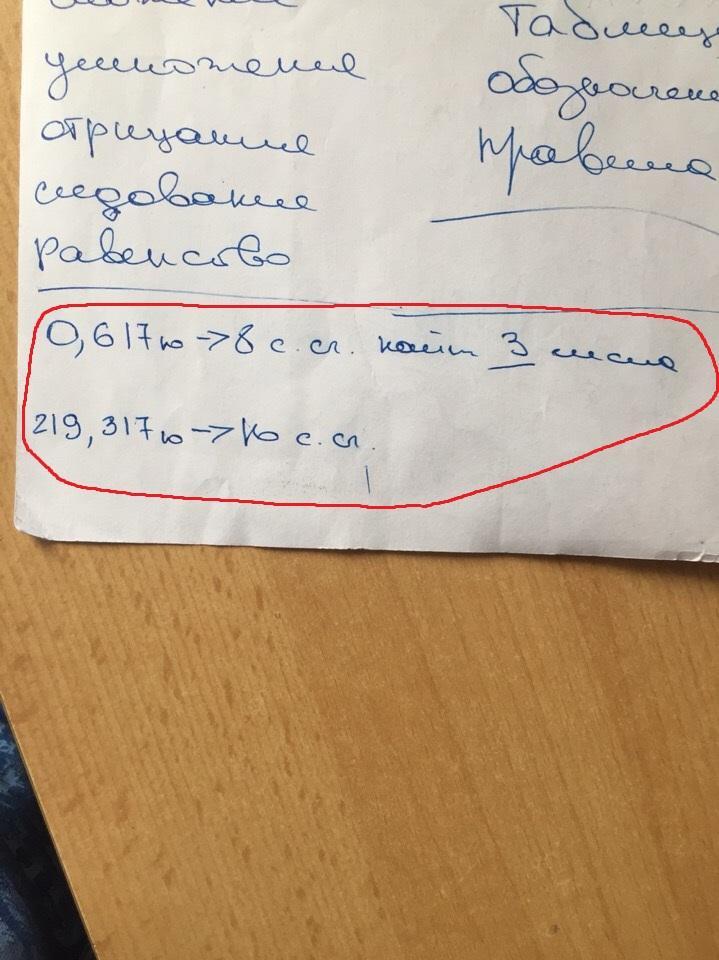 умножение
отрицание
следование
равенсво
Таблиц
обозначен
правила
0,617₁₀ → 8 с. сч. найти 3 числа
219,317₁₀ → 16 с. сч.